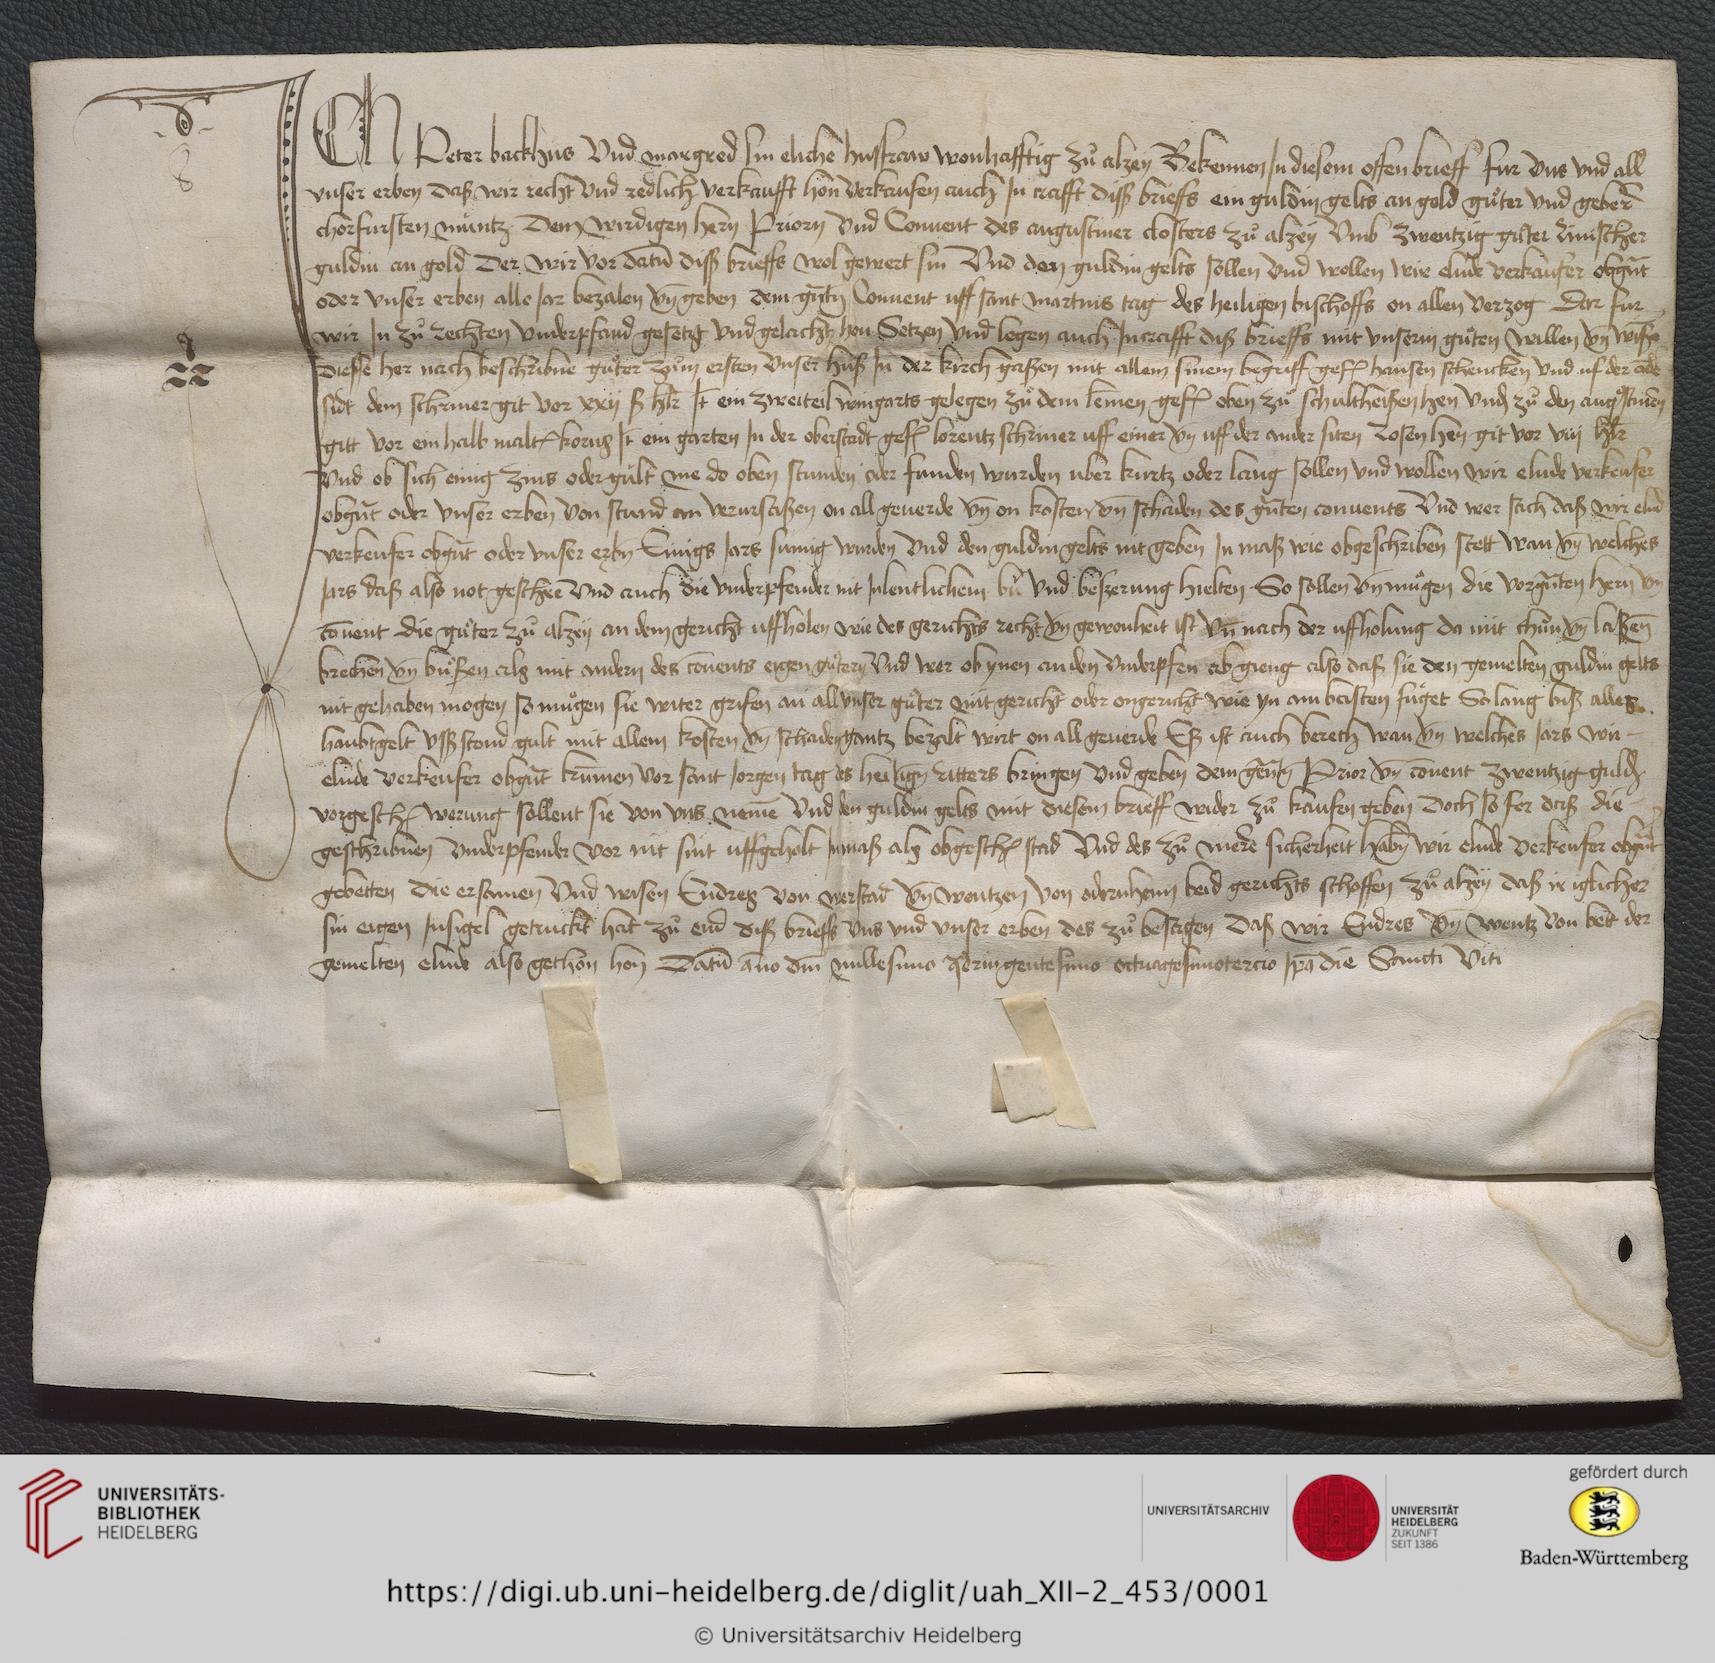 ICH Peter backhus Vnd margred sin eliche husfraw wonhafftig zů alzey Bekennen In diesem offen brieff fur vns vnd all
vnser erben daß wir recht vnd redlich verkaufft hon verkaufen auch In crafft diß brieffs ein guldin gelts an gold gůter vnd geber
chorfursten můntz Dem wirdigen hern Priorn vnd Conuent des augustiner closters zů alzey vmb zwentzig gůter rinischer
guldin an gold Der wir vor datū diß brieffs wol gewert sin Vnd den guldin gelts sollen vnd wollen wir elude verkaufer obgn̄t
oder vnser erben alle Jar bezalen vn̄ geben dem gn̄tn̄ Conuent vff sant martins tag des heiligen bischoffs on allen verzog Dar fur
wir In zů rechten vnderpfand gesetzt vnd gelacht hon Setzen vnd legen auch In crafft diß brieffs mit vnserm gůten willen vn̄
diesse her nach beschribne gůter zům ersten vnser huß In der kirch gaßen mit allem sinem begriff gef hansen schencken vnd vf der
sidt dem schriner git vor xxij ß hlr It ein zweiteil wingarts gelegen zů dem leimen gef oben zů schultheißen hen vnd zů den
gitt vor ein halb malt korns It ein garten In der oberstadt gef lorentz schriner vff einer vn̄ vff der ander siten Losen hen git vor viij hlr
Vnd ob sich einig zins oder gůlt me do oben stunden oder funden wurden vber kurtz oder lang sollen vnd wollen wir elude verkeufer
obgn̄t oder vnser erben von stund an verursaßen on all geuerde vn̄ on kosten vn̄ schaden des gn̄ten conuents Vnd wer sach daß wir elud
verkeufer obgn̄t oder vnser erbn̄ Einigs Jars sumig wurden vnd den guldin gelts nit geben In maß wie obgeschriben stett wan vn̄ welches
Jars daß also not geschee Vnd auch die vnderpfender nit Inlentlichem bů vnd beßerung hielten So sollen vn̄ můgen die vorgn̄ten hern vn̄
cōuent die gůter zů alzey an dem gericht vffholen wie des gerichts recht vn̄ gewonheit ist vn̄ nach der vffholung da mit thůn vn̄ laßen
brechen vn̄ bůßen als mit andern des cōuents eigen gůtern Vnd wer ob ynen an den vnderpfen ab gieng also daß sie den gemelten guldin gelts
nit gehaben mogen so můgen sie witer grifen an all vnser gůter mit gericht oder ongericht wie yn am basten fůget So lang biß alles
haubtgelt vßstond gult mit allem kosten vn̄ schaden gantz bezalt wirt on all geuerde Eß ist auch berett wan vn̄ welches Jars wir
elude verkeufer obgn̄t kūmen vor sant Jorgen tag des heilign̄ ritters bringen vnd geben dem gn̄tn̄ Prior vn̄ cōuent zwentzig guld
vorgesch werung sollent sie von vns neme Vnd den guldin gelts mit diesem brieff wider zů kaufen geben Doch so fer daß die
geschribnen vnderpfender vor nit sint vffgeholt Inmaß als obgesch stad Vnd des zů mere sicherheit habn̄ wir elude verkeufer obgn̄t
gebetten die ersamen vnd wisen Endres von werstad vn̄ wentzen von odernheim beid gerichts schoffen zů alzey daß ir iglicher
sin eigen Insigel getruckt hat zů end diß brieffs vns vnd vnser erben des zů besagen Daß wir Endres vn̄ wentz von bett der
gemelten elude also gethon hon Datū āno dn̄i millesimo qdringentesimo octuagesimotercio Ipa die Sancti Viti
UNIVERSITÄTS-
BIBLIOTHEK
HEIDELBERG
UNIVERSITÄTSARCHIV
UNIVERSITÄT
HEIDELBERG
ZUKUNFT
SEIT 1386
gefördert durch
Baden-Württemberg
https://digi.ub.uni-heidelberg.de/diglit/uah_XII-2_453/0001
© Universitätsarchiv Heidelberg